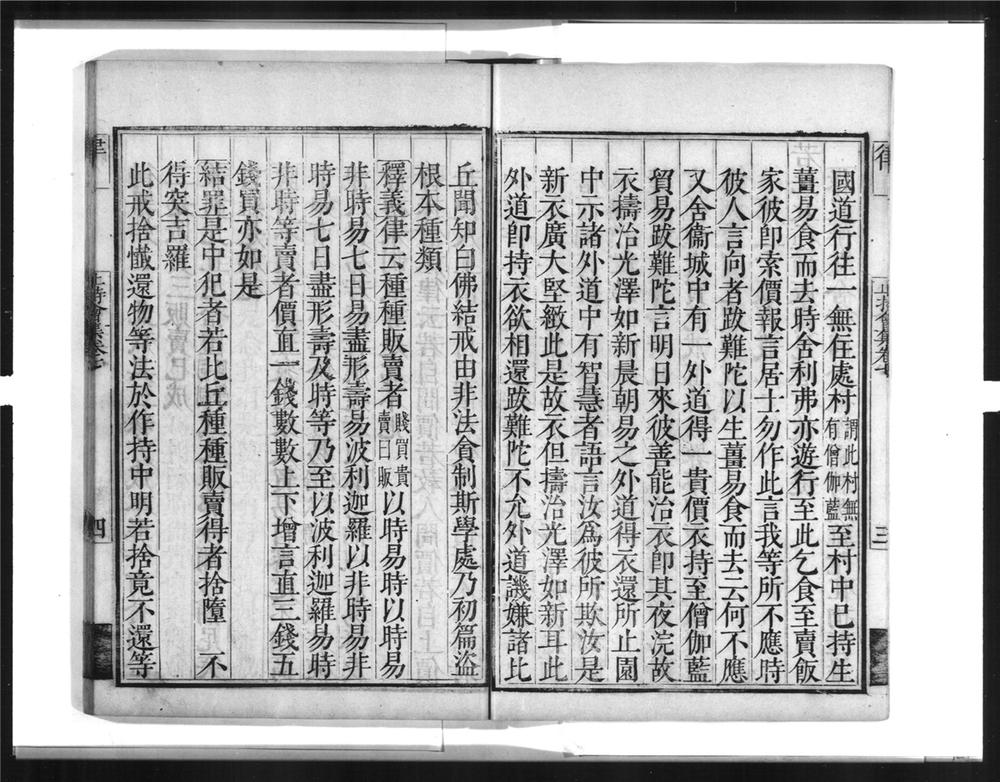 國道行往一無住處村謂此村無有僧伽藍至村中已持生
薑易食而去時舍利弗亦遊行至此乞食至賣飯
家彼卽索價報言居士勿作此言我等所不應時
彼人言向者跋難陀以生薑易食而去云何不應
又舍衞城中有一外道得一貴價衣持至僧伽藍
貿易跋難陀言明日來彼善能治衣卽其夜浣故
衣擣治光澤如新晨朝易之外道得衣還所止園
中示諸外道中有智慧者語言汝爲彼所欺汝是
新衣廣大堅緻此是故衣但擣治光澤如新耳此
外道卽持衣欲相還跋難陀不允外道譏嫌諸比
三
丘聞知白佛結戒由非法貪制斯學處乃初篇盜
根本種類
釋義律云種種販賣者賤買貴賣曰販以時易時以時易
非時易七日易盡形壽易波利迦羅以非時易非
時易七日盡形壽及時等乃至以波利迦羅易時
非時等賣者價直一錢數數上下增言直三錢五
錢買亦如是
結罪是中犯者若比丘種種販賣得者捨墮 不
得突吉羅
此戒捨懺還物等法於作持中明若捨竟不還等
律
四